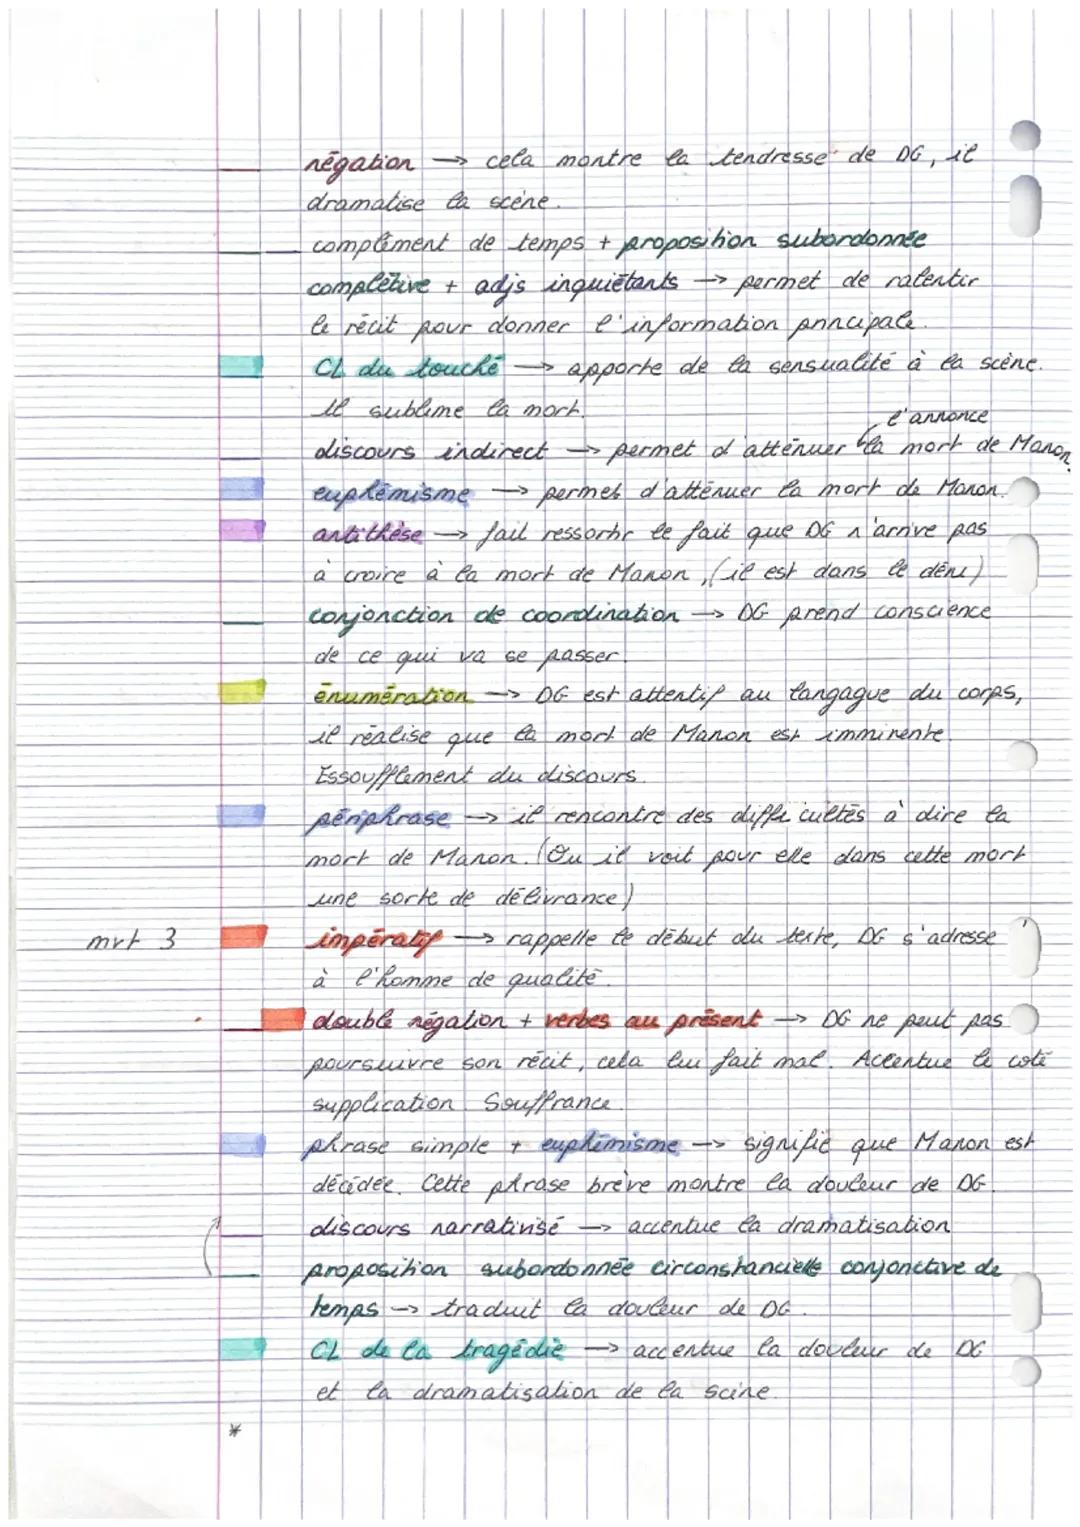 négation → cela montre la tendresse de DG, il
dramatise la scène.
complément de temps + proposition subordonnée
complétive + adjs inquiétants → permet de ralentir
le récit pour donner l'information principale.
CL du touché → apporte de la sensualité à la scène.
Il sublime la mort.
l'annonce
discours indirect → permet d'atténuer la mort de Manon.
euphémisme → permet d'atténuer la mort de Manon.
antithèse → fait ressortir le fait que DG n'arrive pas
à croire à la mort de Manon, (il est dans le déni)
conjonction de coordination → DG prend conscience
de ce qui va se passer.
énumération → DG est attentif au langague du corps,
il réalise que la mort de Manon est imminente.
Essoufflement du discours.
périphrase → il rencontre des difficultés à dire la
mort de Manon. (Ou il voit pour elle dans cette mort
une sorte de délivrance)
mvt 3 impératif → rappelle le début du texte, DG s'adresse
à l'homme de qualité.
double négation + verbes au présent → DG ne peut pas
poursuivre son récit, cela lui fait mal. Accentue le coté
supplication. Souffrance.
phrase simple + euphémisme → signifie que Manon est
décédée. Cette phrase brève montre la douleur de DG.
discours narrativisé → accentue la dramatisation
proposition subordonnée circonstancielle conjonctive de
temps → traduit la douleur de DG.
CL de la tragédie → accentue la douleur de DG
et la dramatisation de la scène.
*